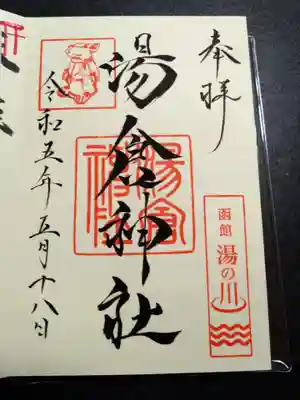 奉拝
函館
湯の川
湯倉神社
令和五年五月十八日